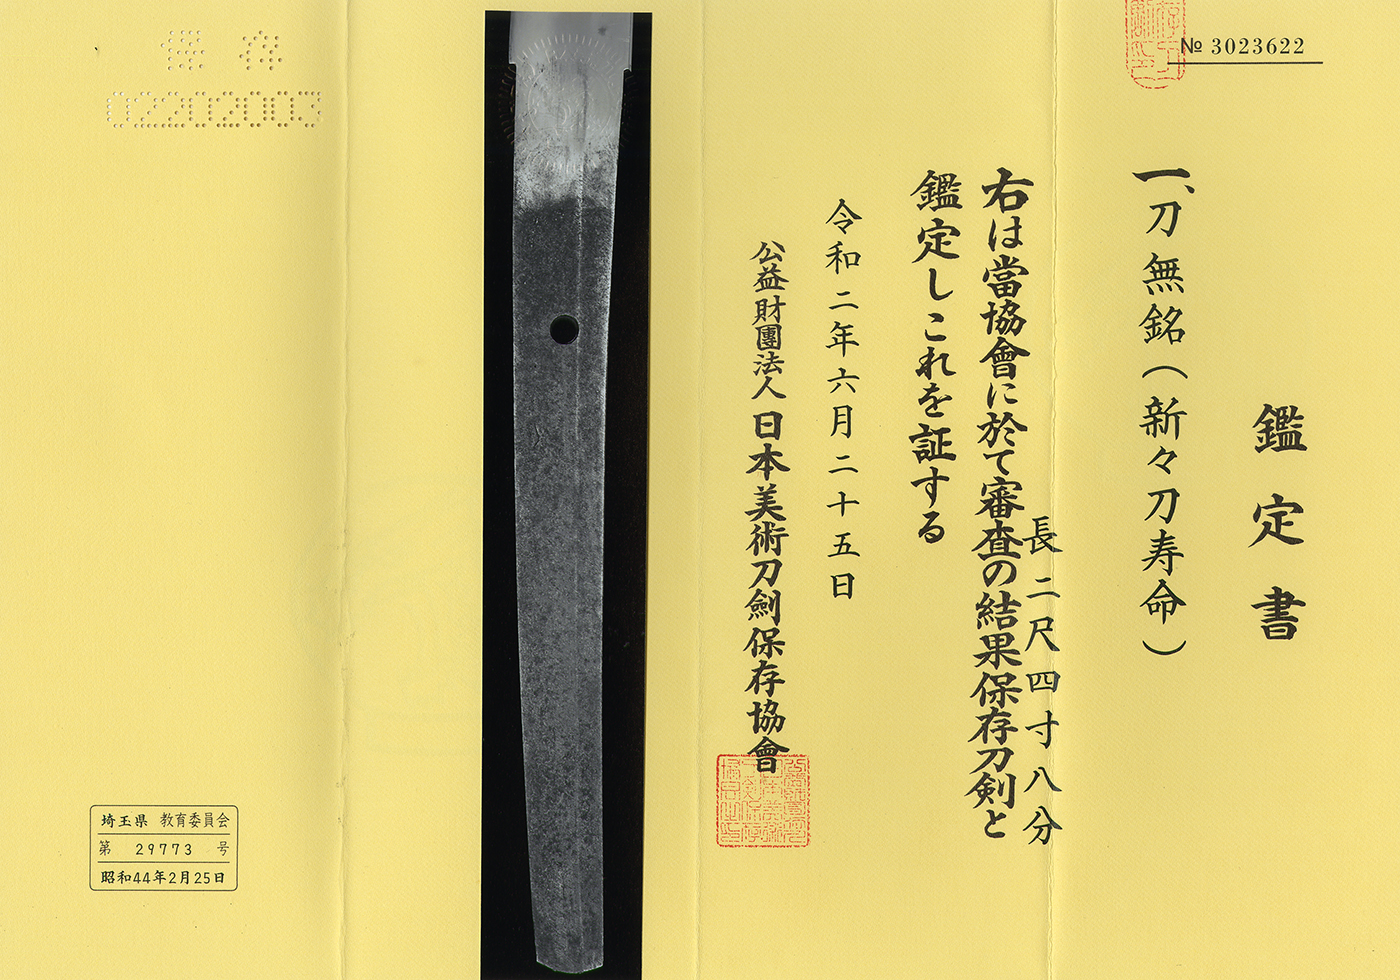 № 3023622
鑑定書
一、刀 無銘(新々刀寿命)
長二尺四寸八分
右は當協會に於て審査の結果保存刀剣と
鑑定しこれを証する
令和二年六月二十五日
公益財團法人 日本美術刀劍保存協會
保存
02202003
埼玉県 教育委員会
第 29773 号
昭和44年2月25日